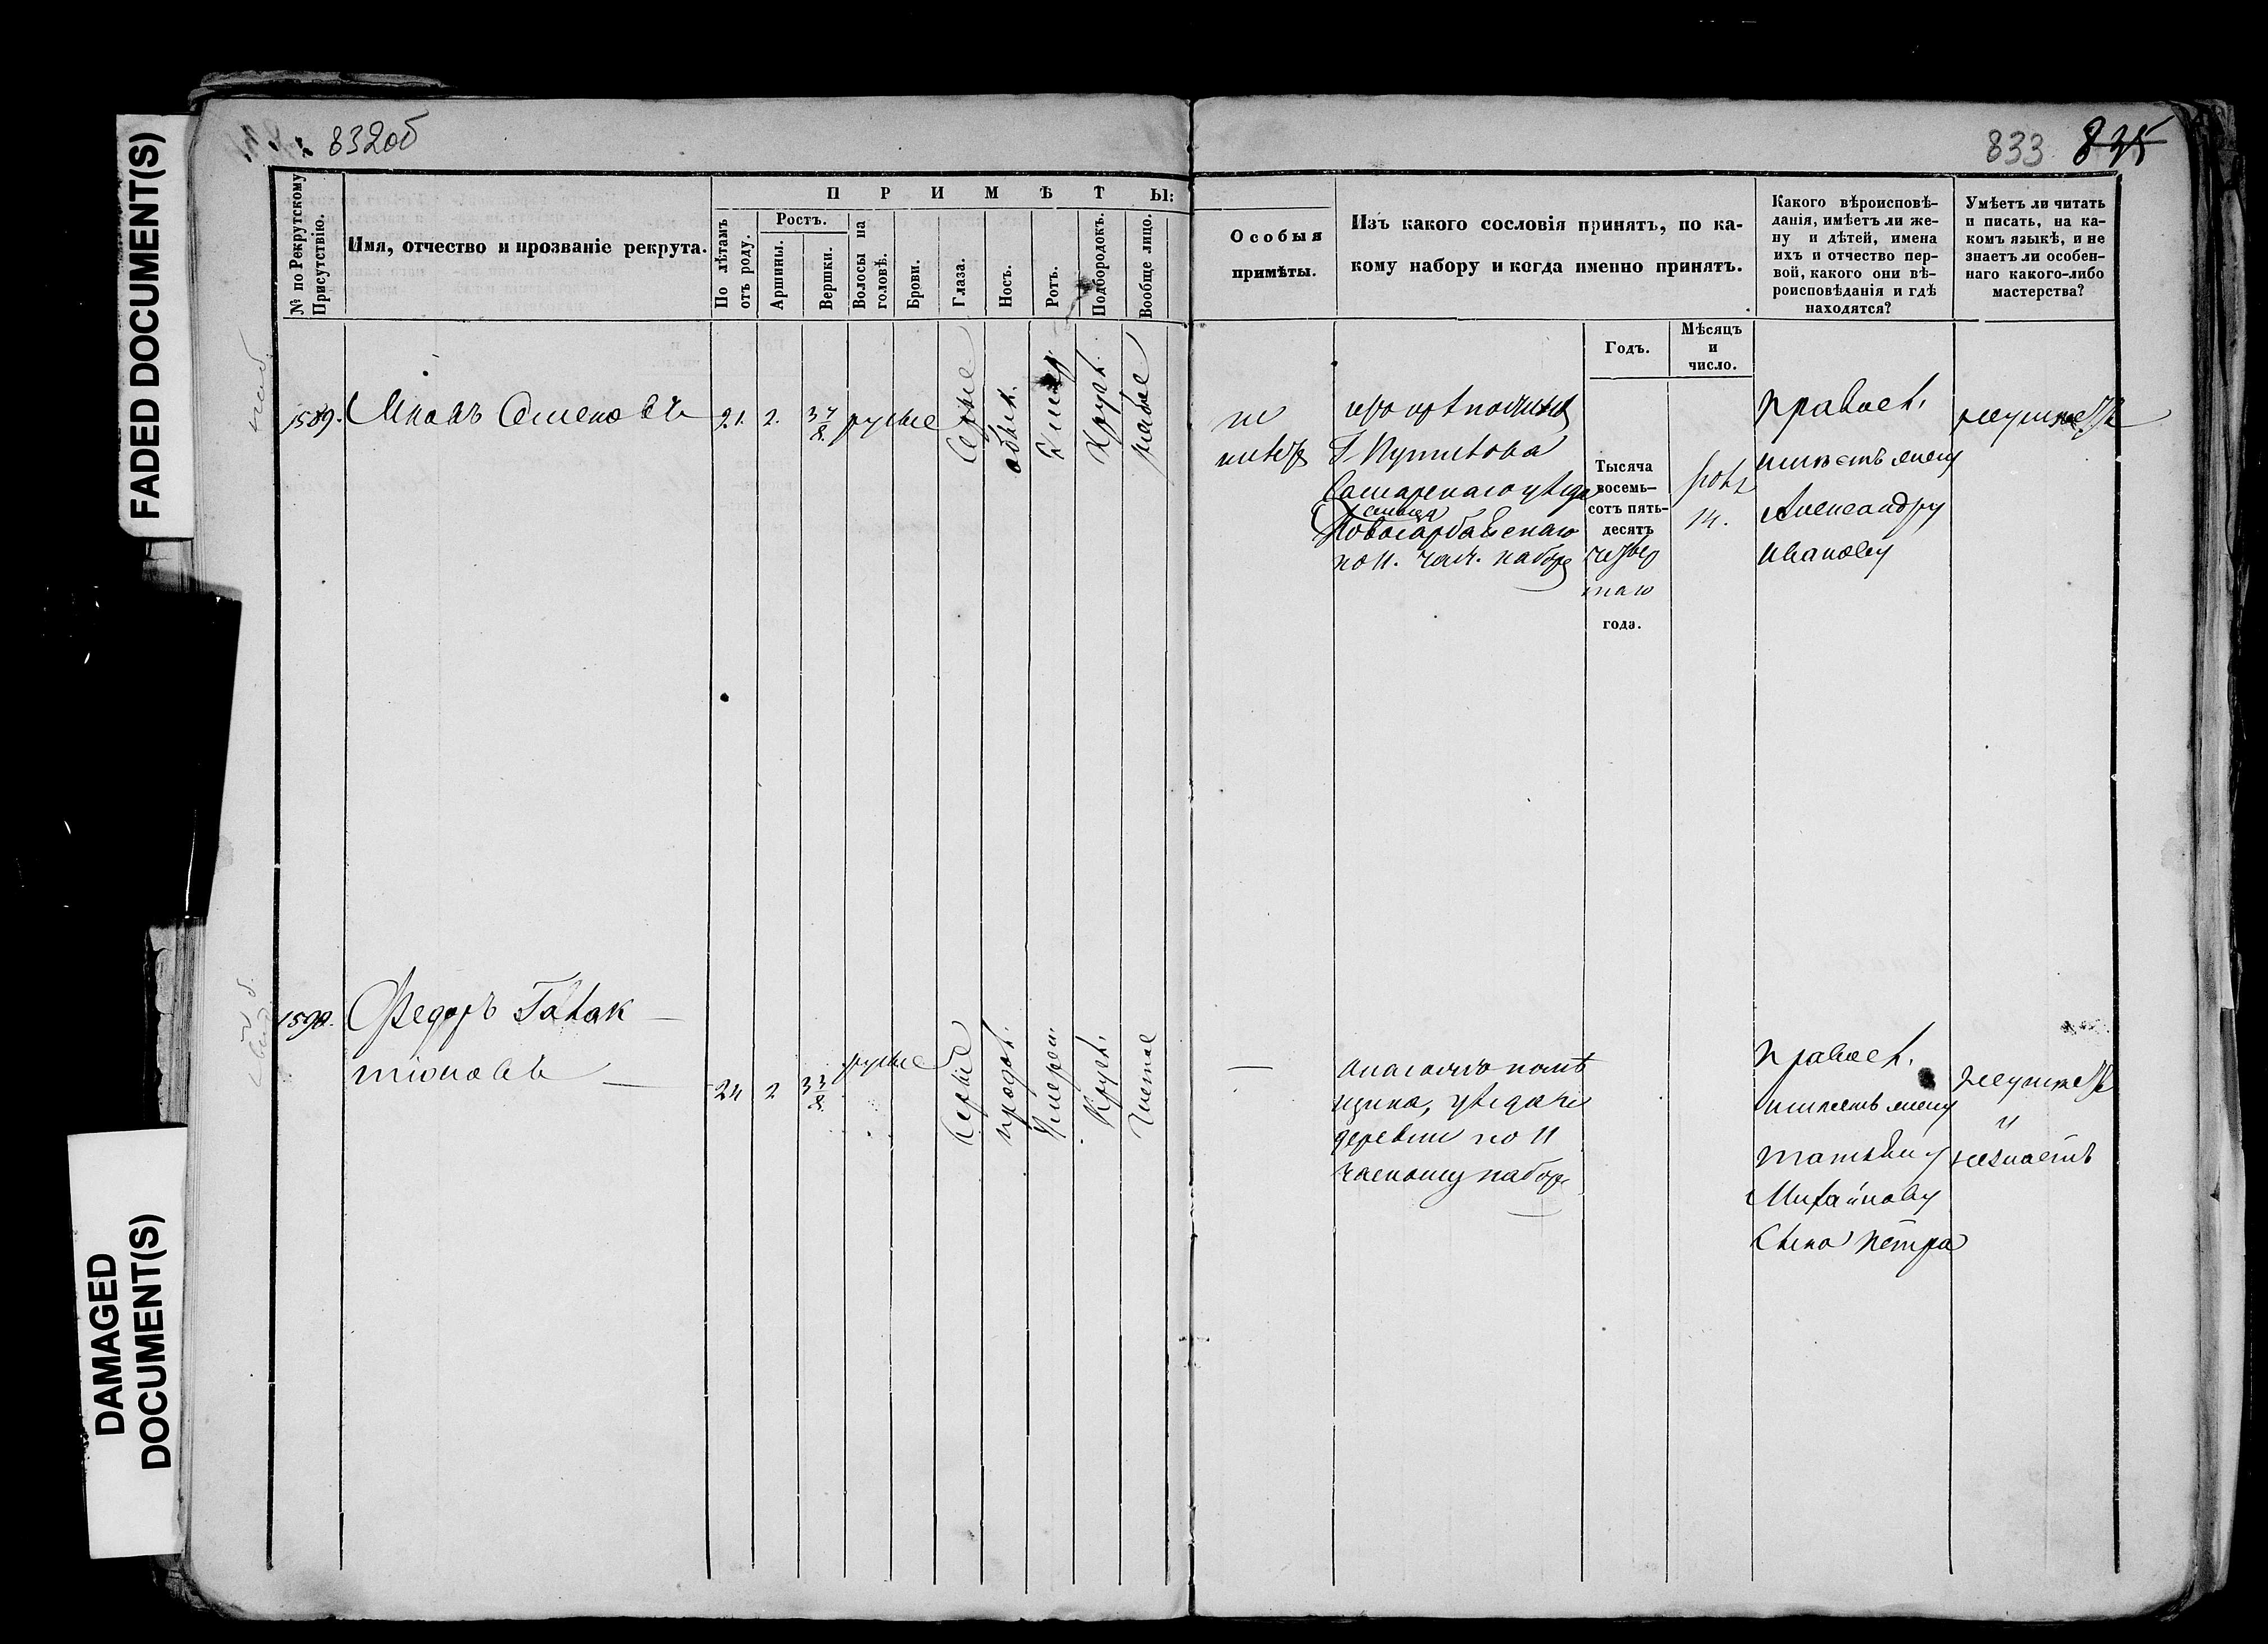 FADED DOCUMENT(S)
DAMAGED
DOCUMENT(S)
832об
833 835
№ по Рекрутскому
Присутствію.
Имя, отчество и прозваніе рекрута.
П Р И М Ѣ Т Ы:
По лѣтамъ
отъ роду.
Ростъ.
Аршины.
Вершки.
Волосы на
головѣ.
Брови.
Глаза.
Носъ.
Ротъ.
Подбородокъ.
Вообще лицо.
Особыя
примѣты.
Изъ какого сословія принятъ, по ка-
кому набору и когда именно принятъ.
Годъ.
Мѣсяцъ
и
число.
Какого вѣроисповѣ-
данія, имѣетъ ли же-
ну и дѣтей, имена
ихъ и отчество пер-
вой, какого они вѣ-
роисповѣданія и гдѣ
находятся?
Умѣетъ ли читать
и писать, на ка-
комъ языкѣ, и не
знаетъ ли особен-
наго какого-либо
мастерства?
1589.
21. 2. 3 4/8 русые
Серые
обык.
Кругл.
рябое
не
имѣетъ
Г. Путилова
Самарскаго уѣзда
сельца
Новосарбайскаго
по 11. част. набору
Тысяча
восемь-
сотъ пять-
десятъ
четвер
таго
года.
14.
Правосл.
имѣетъ жену
Александру
Иванову
неумѣетъ
1590.
Федоръ Галак
тіоновъ
24 2 3 3/8
русые
Серые
Умерен.
Кругл.
Чистое
—
уѣзда и
деревни по 11
частному набору
Правосл.
имѣетъ жену
Татьяну
Михайлову
Сына Петра
Неумѣетъ
и
незнаетъ